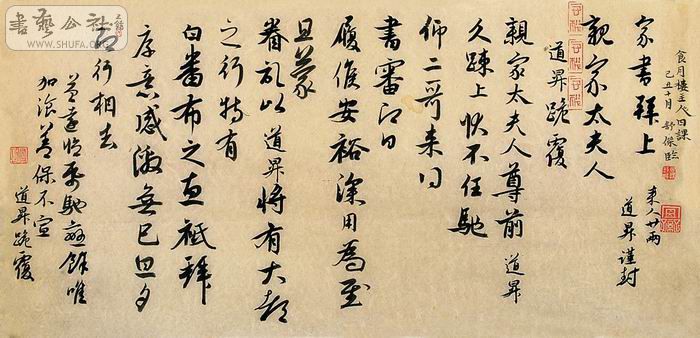 食月樓主人日課
己丑十月
家書拜上
来人廿兩
道昇謹封
親家太夫人
道昇跪覆
親家太夫人尊前道昇
久踈上状不任馳
仰二哥来得
書審即日
履候安裕深用為慰
且蒙
眷記以道昇將有大都
之行特有
白番布之惠祗拜
厚意感激無已旦夕
即行相去
益遠臨紙馳戀餘唯
加飡善保不宣
道昇跪覆
書藝公社